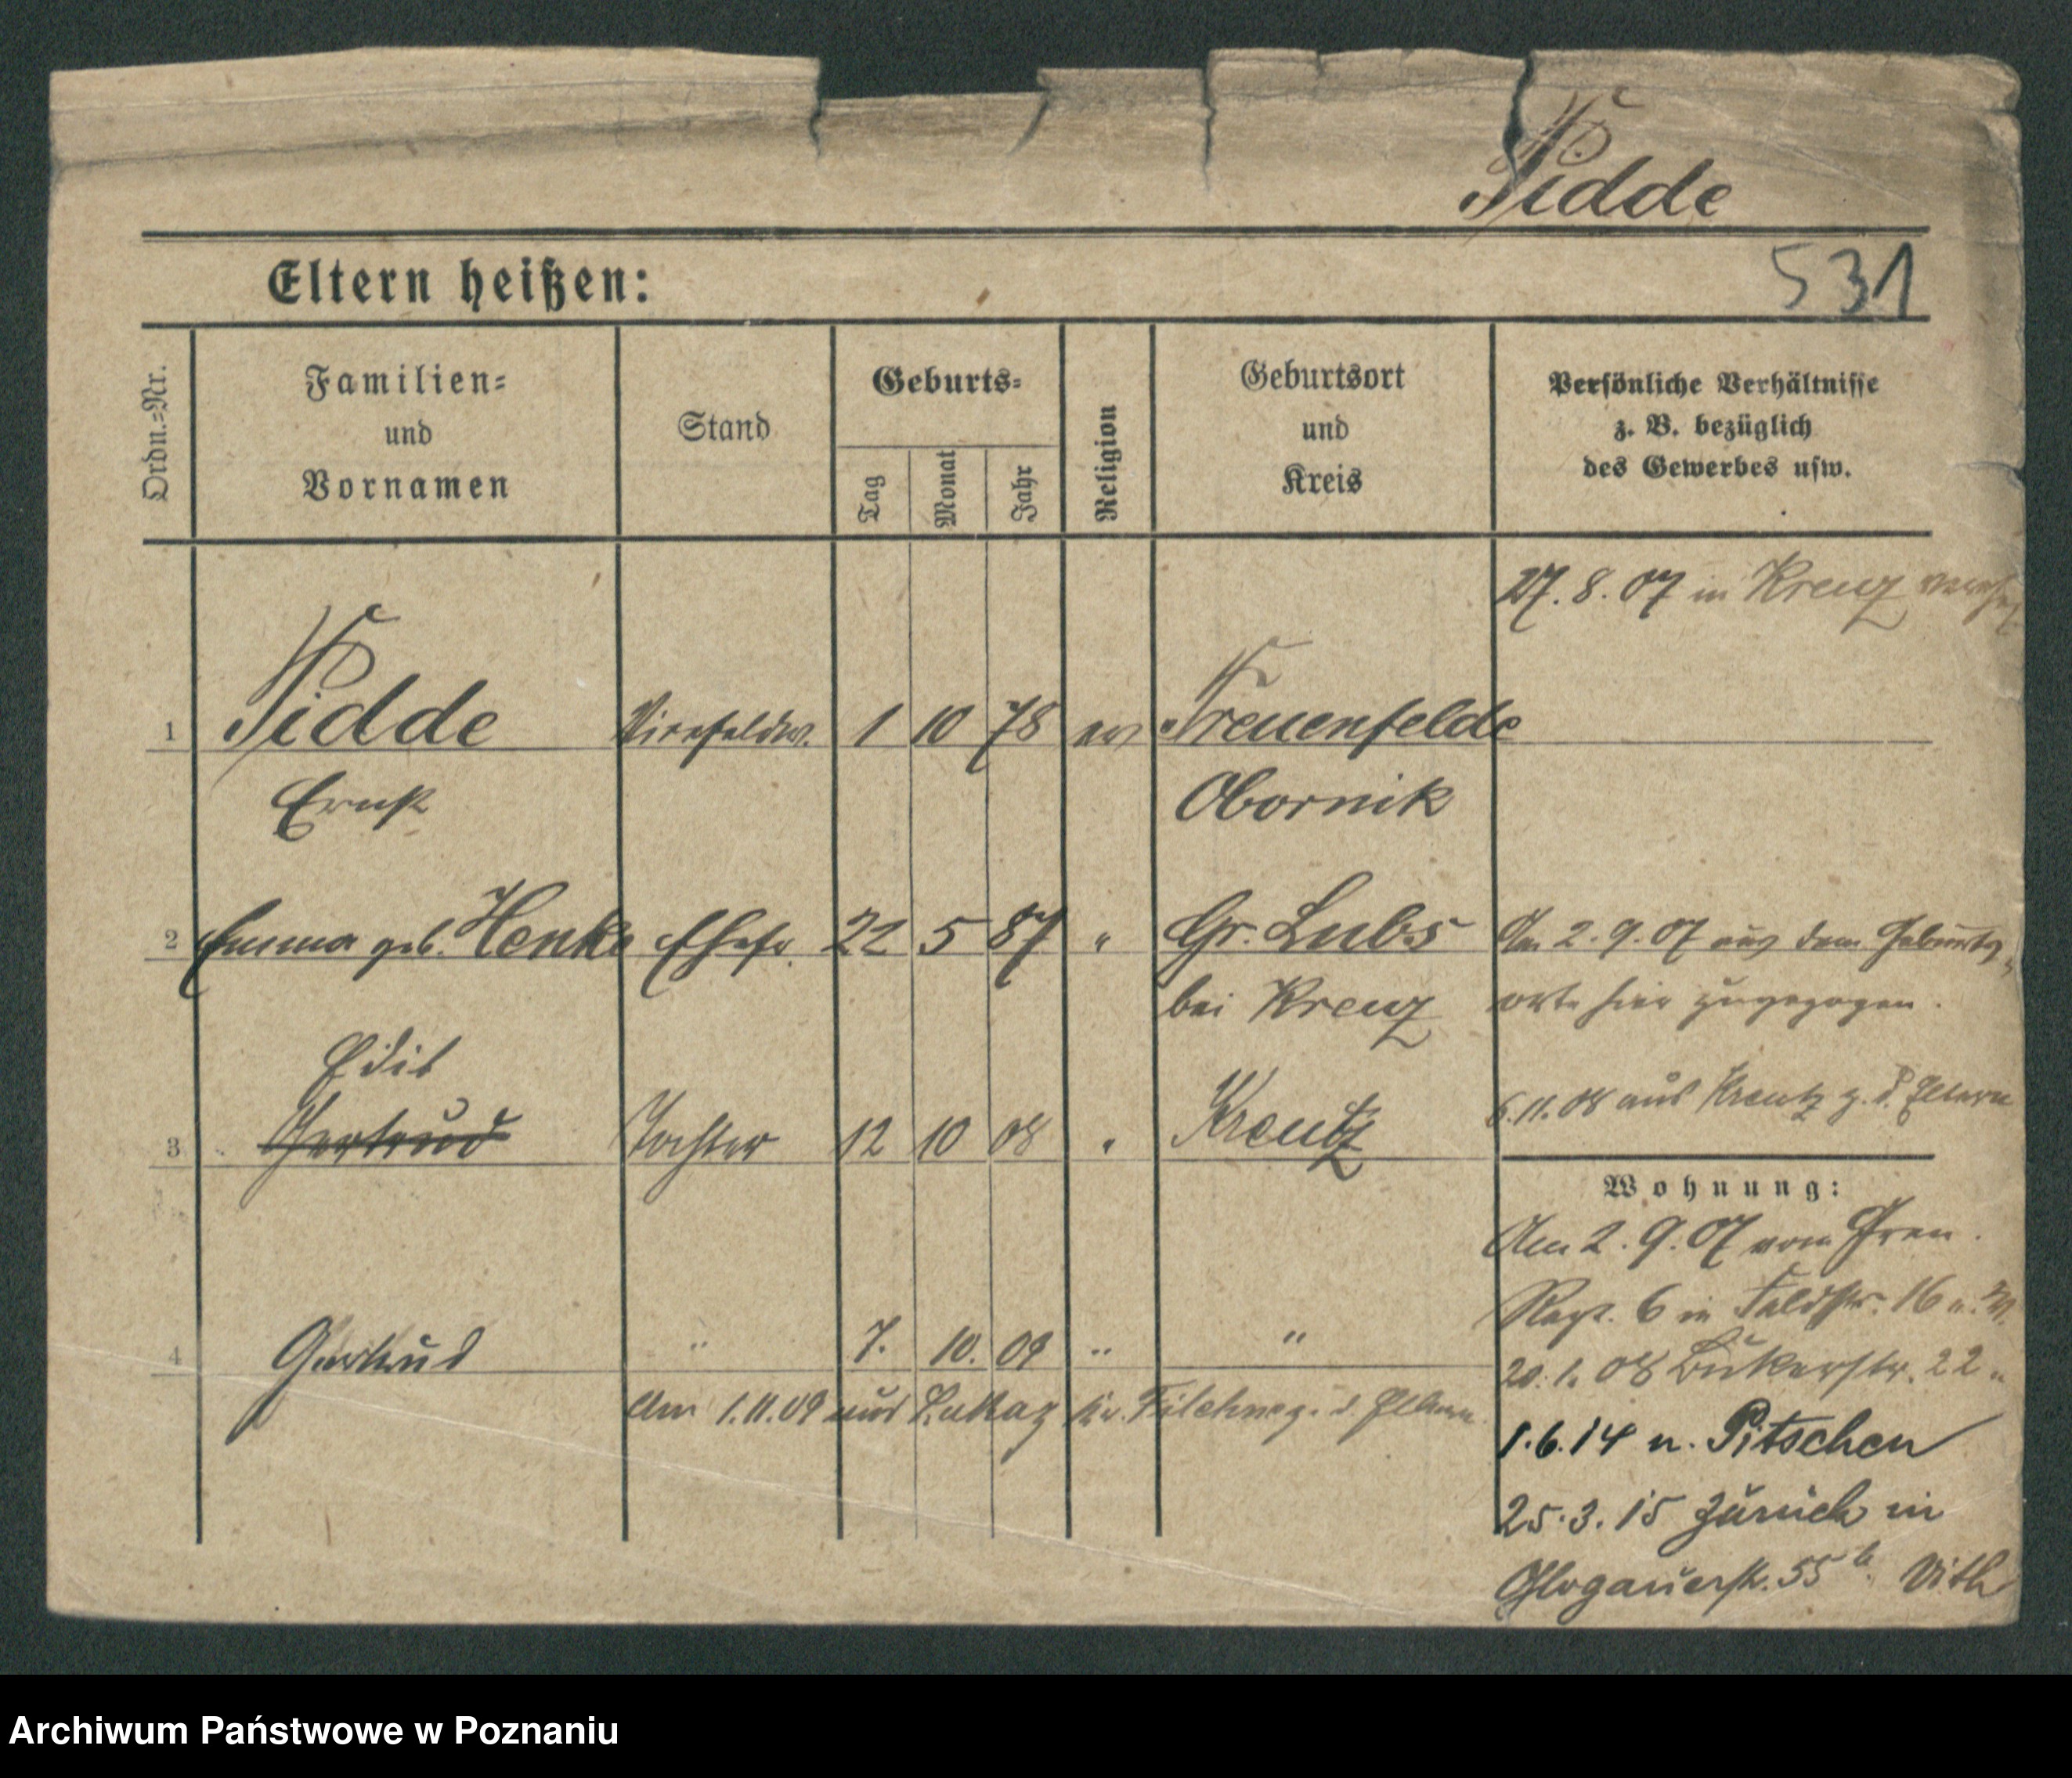 Tidde
Eltern heißen:
531
Ordn.=Nr.
Familien=
und
Vornamen
Stand
Geburts=
Tag
Monat
Jahr
Religion
Geburtsort
und
Kreis
Persönliche Verhältnisse
z. B. bezüglich
des Gewerbes usw.
27.8.07 in Kreuz
1 Tidde Vizefeldw. 1 10 78 ev Treuenfelde
Ernst Obornik
2 Emma geb. Henke Ehefr. 22 5 87 " Gr. Lubs Am 2.9.07 aus dem Geburts-
bei Kreuz orte hier zugezogen.
Edit
3 Gertrud Tochter 12 10 08 " Kreutz 6.11.08 aus Kreutz z. d. Eltern
Wohnung:
Am 2.9.07 vom Gren.
Regt. 6 in Feldstr. 16 n.
4 Gertrud " 7. 10. 09 " "
20.1.08 Bukerstr. 22 n
Am 1.11.09 aus Lukaz Kr. Filehne z. d. Eltern
1.6.14 n. Pitschen
25.3.15 zurück in
Glogauerstr. 55 b.
Archiwum Państwowe w Poznaniu